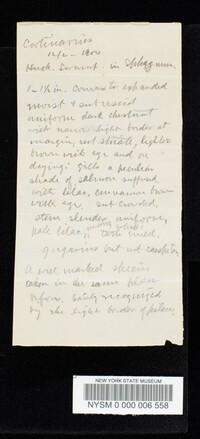 Cortinarius
12/2 - 1900
Huck. Swamp. in Sphagnum
1-1½ in. Convex to expanded
moist & subviscid
uniform dark chestnut
with narrow light border at
margin, not striate, lighter
brown with age and on
drying: gills a peculiar
shade of salmon suffused
with lilac, cinnamon brown
with age, not crowded,
stem slender, uniform,
pale lilac, taste mild.
gregarious but not caespitose
A well marked species
taken in the same place
before. Easily recognized
by the light border of pileus
NEW YORK STATE MUSEUM
NYSM 0 000 006 558